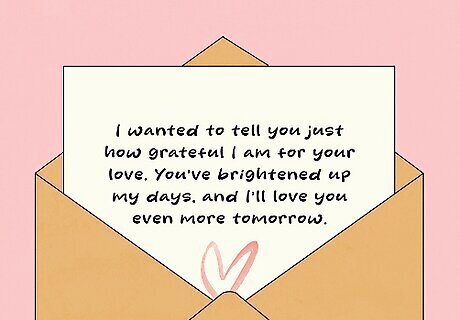 I wanted to tell you just
how grateful I am for your
love. You've brightened up
my days, and I'll love you
even more tomorrow.